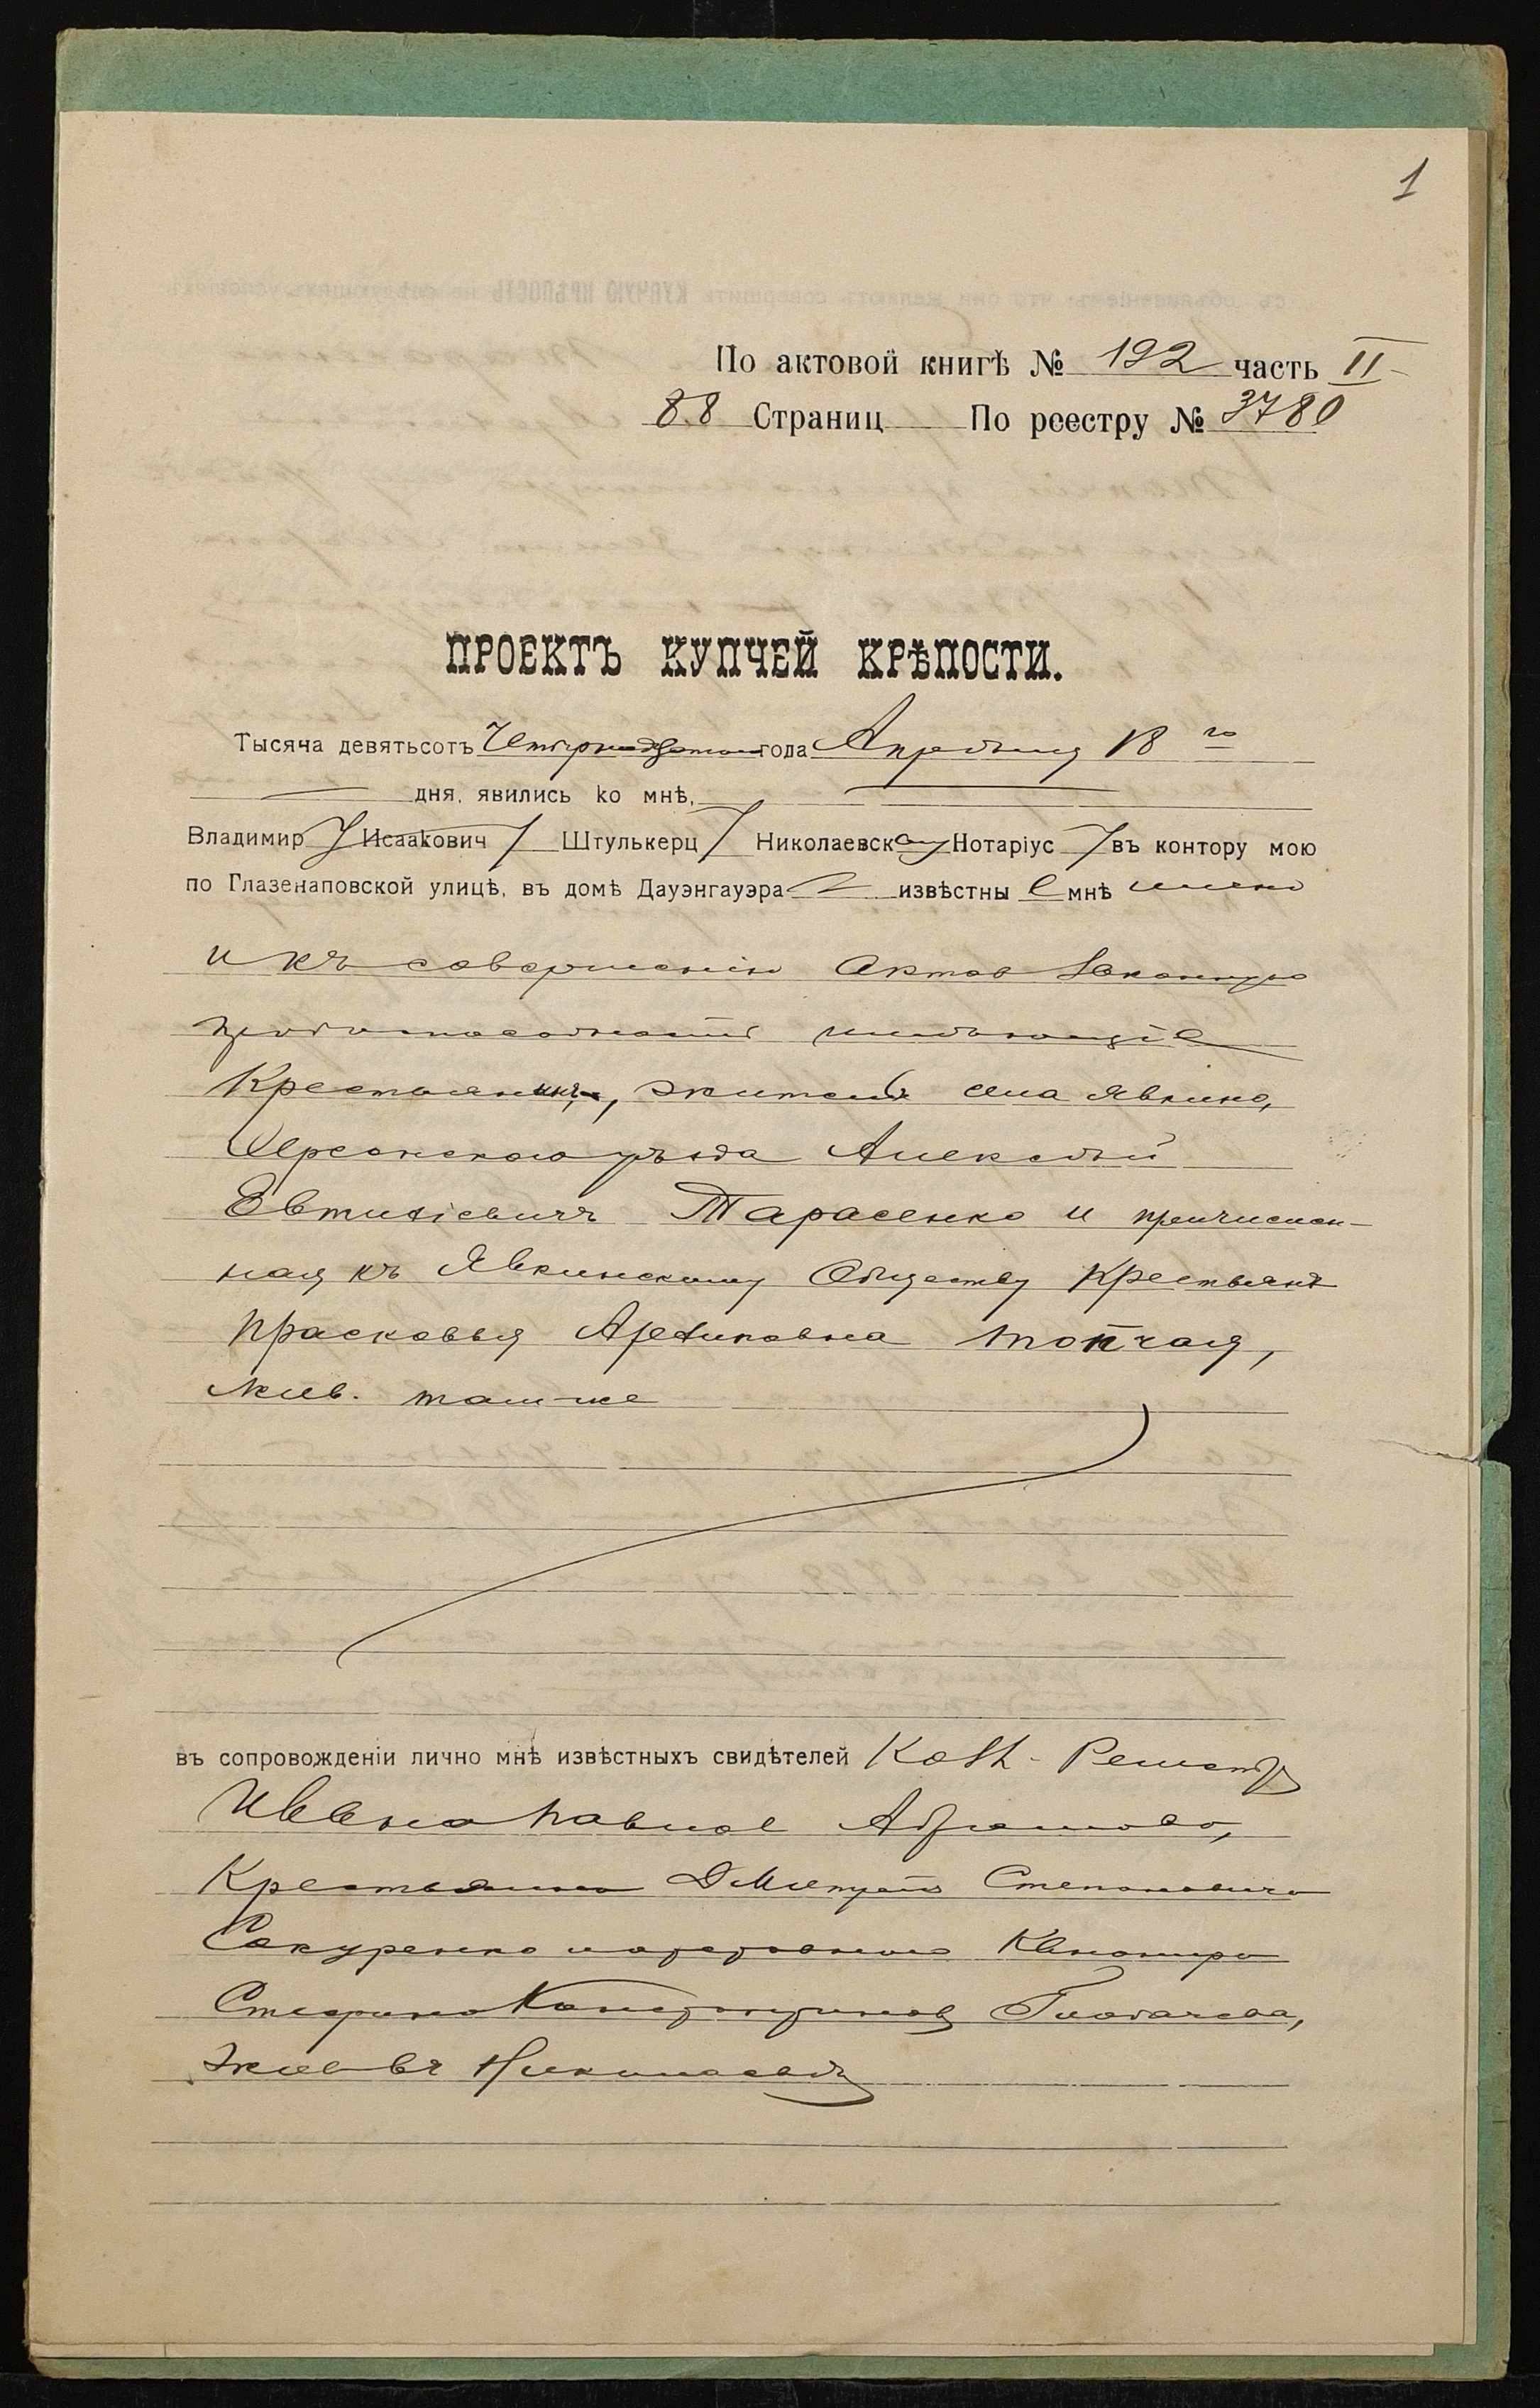 1
По актовой книгѣ № 192 часть II
88 Страниц По реестру № 3780
ПРОЕКТЪ КУПЧЕЙ КРѢПОСТИ.
Тысяча девятьсотъ Четырнадцатого года Апрѣля 18 го
дня, явились ко мнѣ,
Владимир Исаакович Штулькерц Николаевск Нотаріус въ контору мою
по Глазенаповской улицѣ, въ домѣ Дауэнгауэра извѣстны е мнѣ лично
и къ совершенію актов законную
правоспособность имѣющіе
Крестьянинъ, житель села Явкино,
Херсонскаго уѣзда Алексѣй
Евтихіевичъ Тарасенко и причислен-
ная къ Явкинскому Обществу Крестьянъ
Прасковья Арефиковна Топчая,
жив. там-же
въ сопровожденіи лично мнѣ извѣстныхъ свидѣтелей Колл. Регистр
Ивана Павлов Абрамова,
Крестьянина Дмитрія Степановича
Сакуренко и
Стефана Константинов
жив въ Николаевѣ